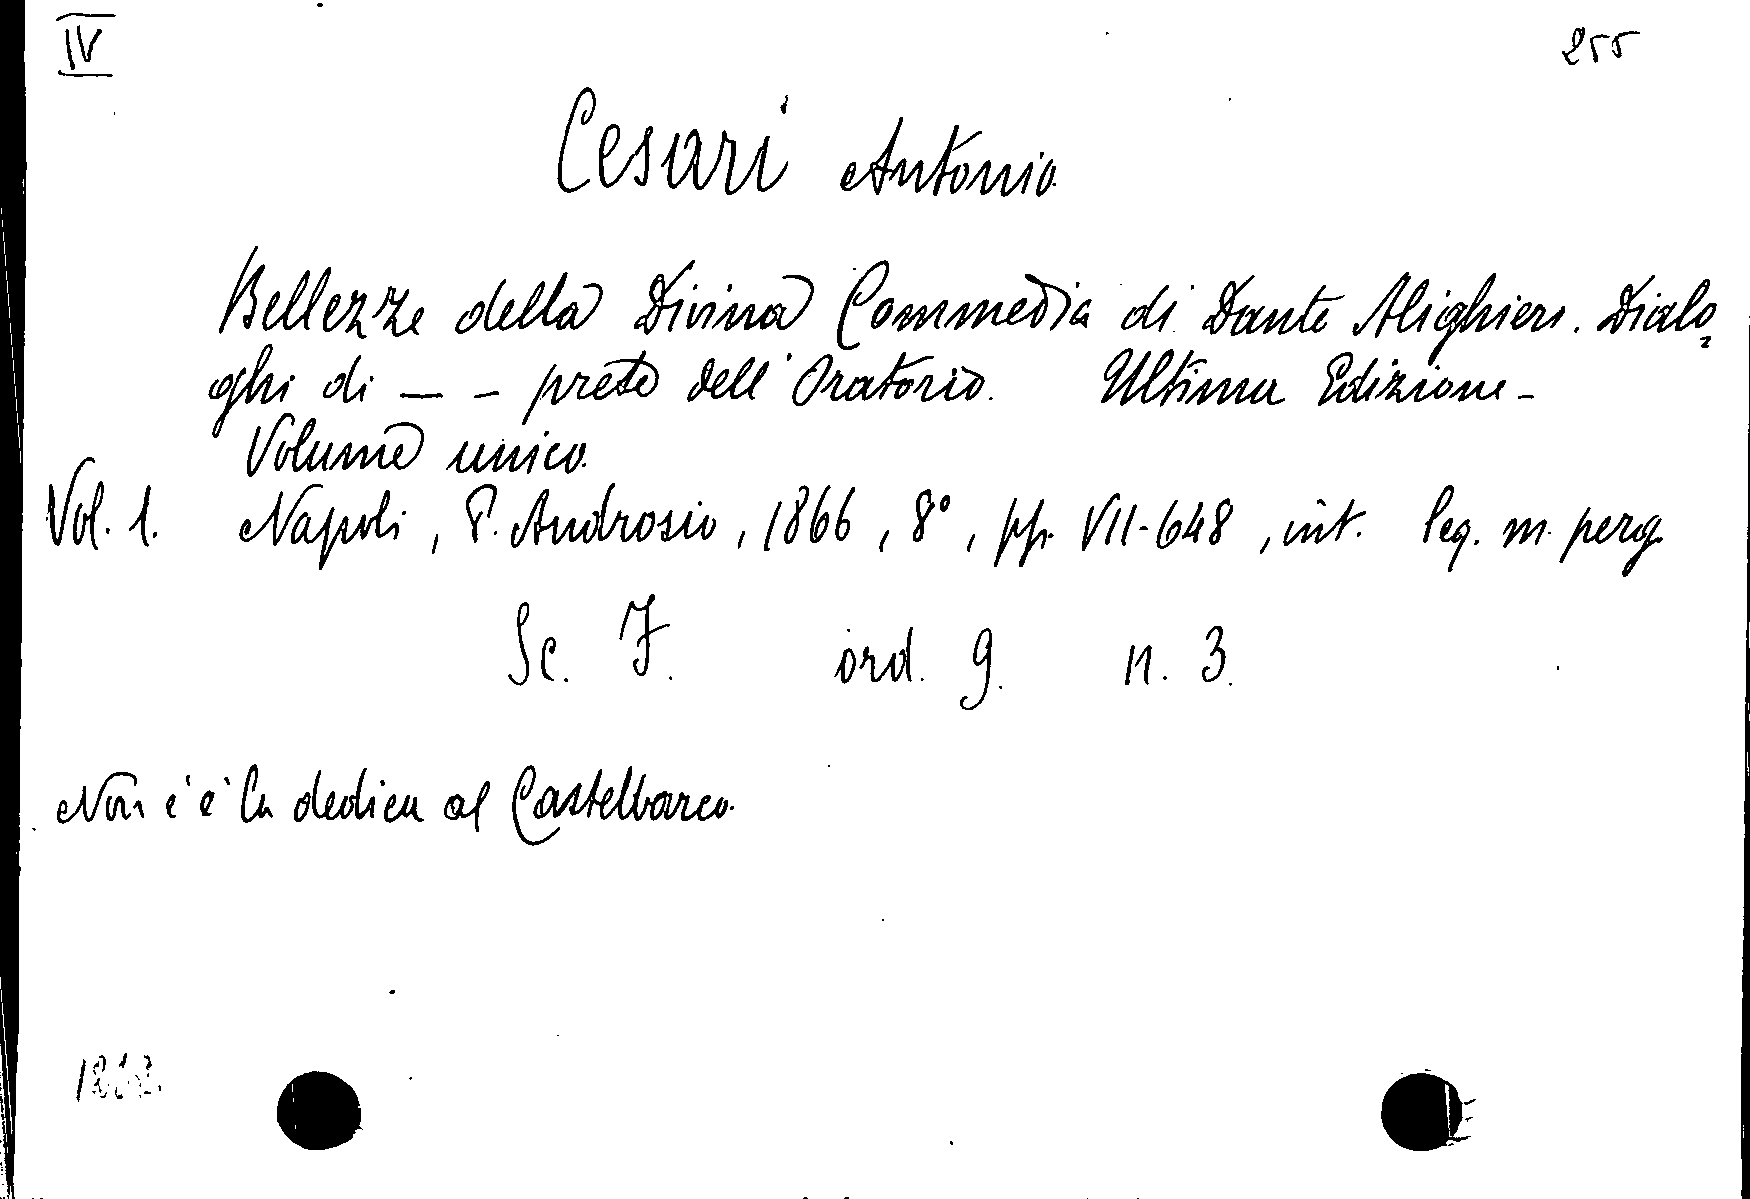 IV 255
Cesari Antonio
Bellezze della Divina Commedia di Dante Alighieri. Dialo=
ghi di — — prete dell'Oratorio. Ultima Edizione -
Volume unico.
Vol. 1. Napoli, P. Androsio, 1866, 8°, pp. VII-648, int. leg. m. perg.
Sc. J. ord. 9. n. 3.
Non c'è la dedica al Castelbarco.